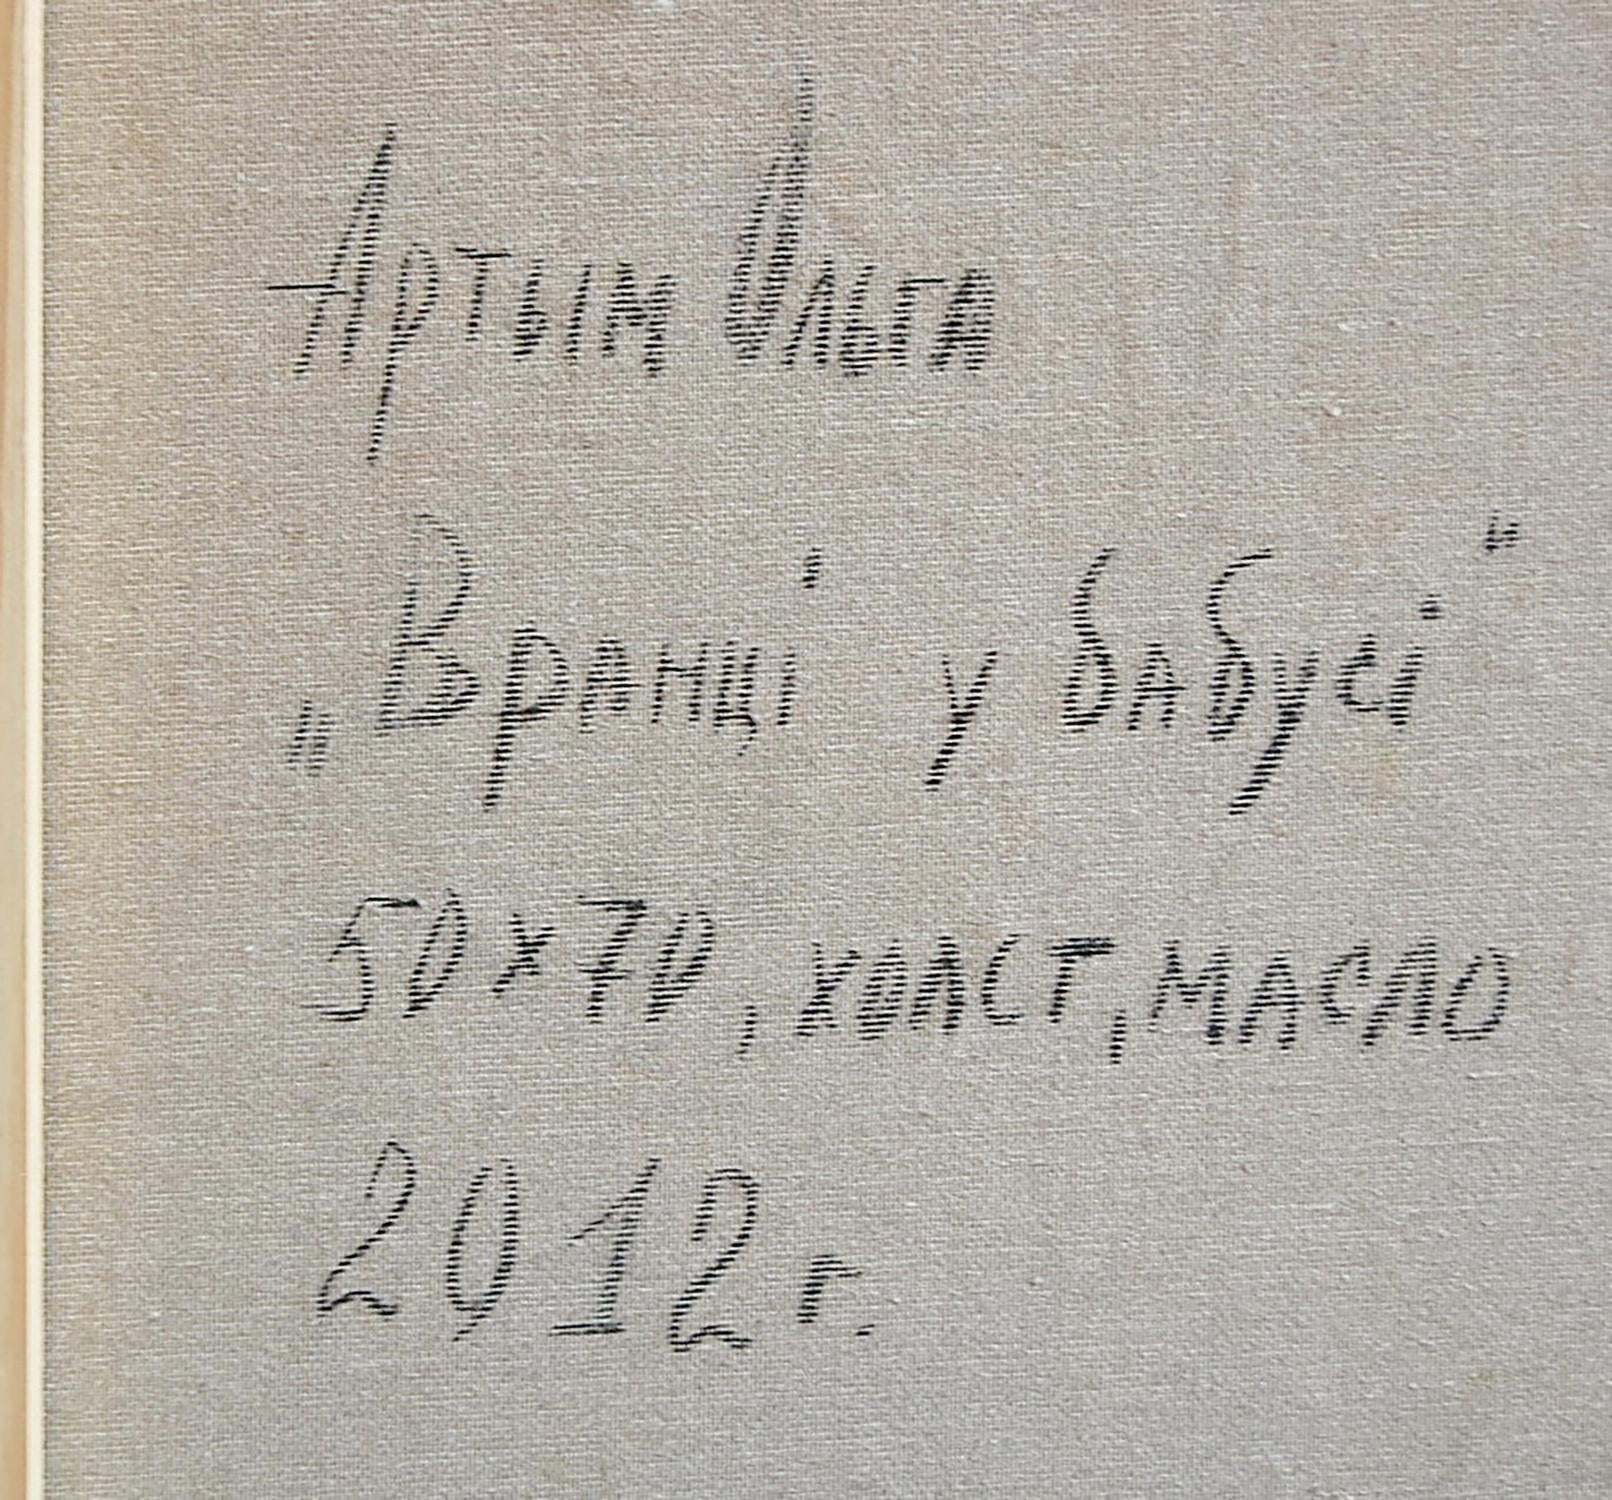 Артым Ольга
„Вранці у бабусі“
50x70, холст, масло
2012 г.